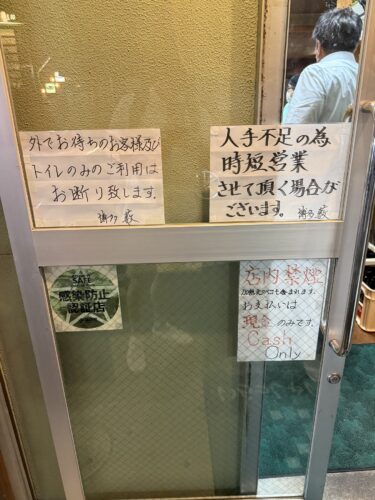 外でお待ちのお客様及び
トイレのみのご利用は
お断り致します。
博多 藪
人手不足の為
時短営業
させて頂く場合が
ございます。 博多 藪
SAFE
感染防止
認証店
店内禁煙
加熱式タバコも含まれます。
お支払いは
現金 のみです。
Cash
Only